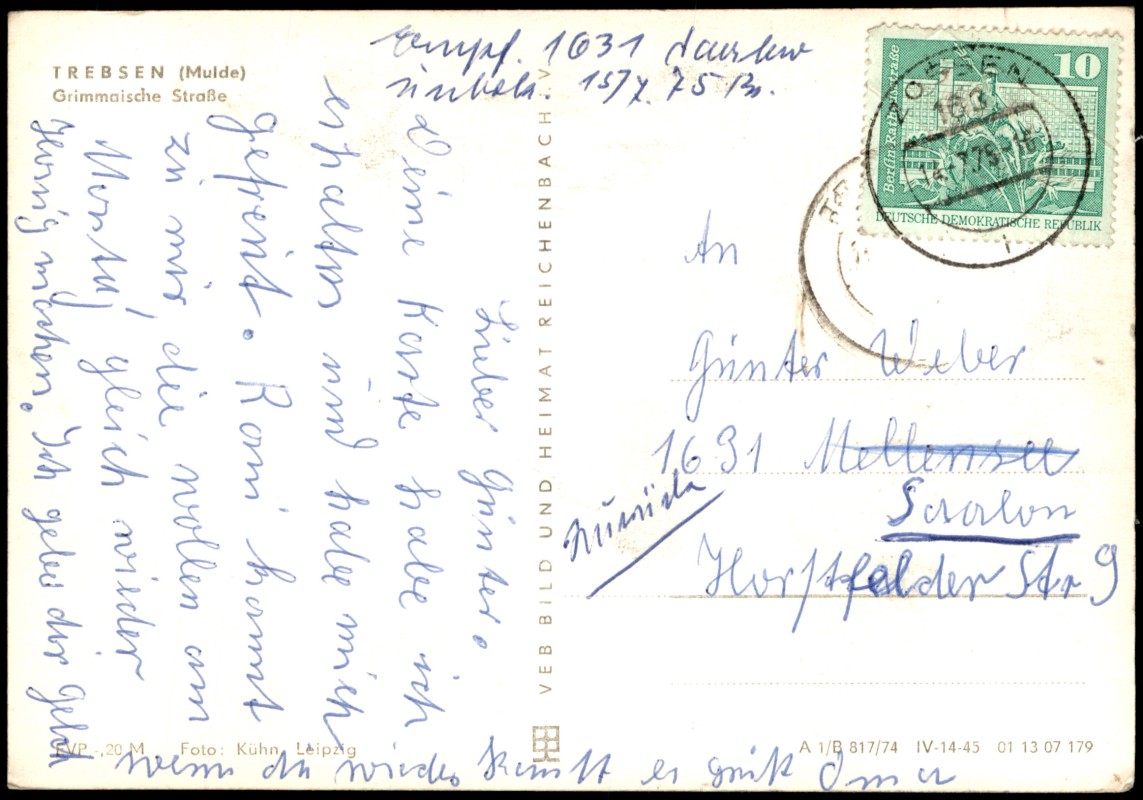 TREBSEN (Mulde)
Grimmaische Straße
empf. 1631 Saalow
unbek. 15/7. 75 Br.
Lieber Günter.
Deine Karte habe ich
erhalten und habe mich
gefreut. Romi kommt
zu mir die wollen am
Montag gleich wieder
Honig machen. Ich gebe dir Geld
wenn du wieder kommst es grüßt Oma
VEB BILD UND HEIMAT REICHENBACH V
Berlin Rathausstraße
10
DEUTSCHE DEMOKRATISCHE REPUBLIK
ZOSSEN
163
14.-7.75-16
An
Günter Weber
1631 Mellensee
Saalow
Zurück
Horstfelder Str 9
EVP -,20 M Foto: Kühn, Leipzig
A 1/B 817/74 IV-14-45 01 13 07 179